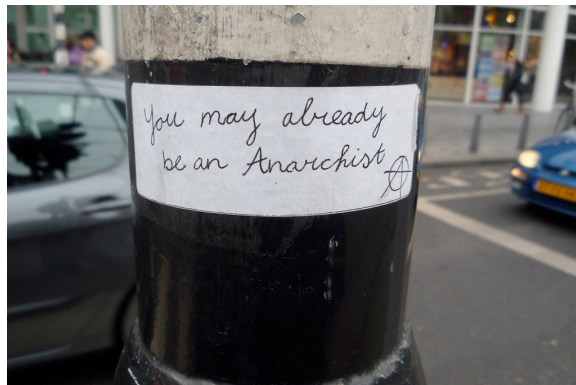 You may already
be an Anarchist